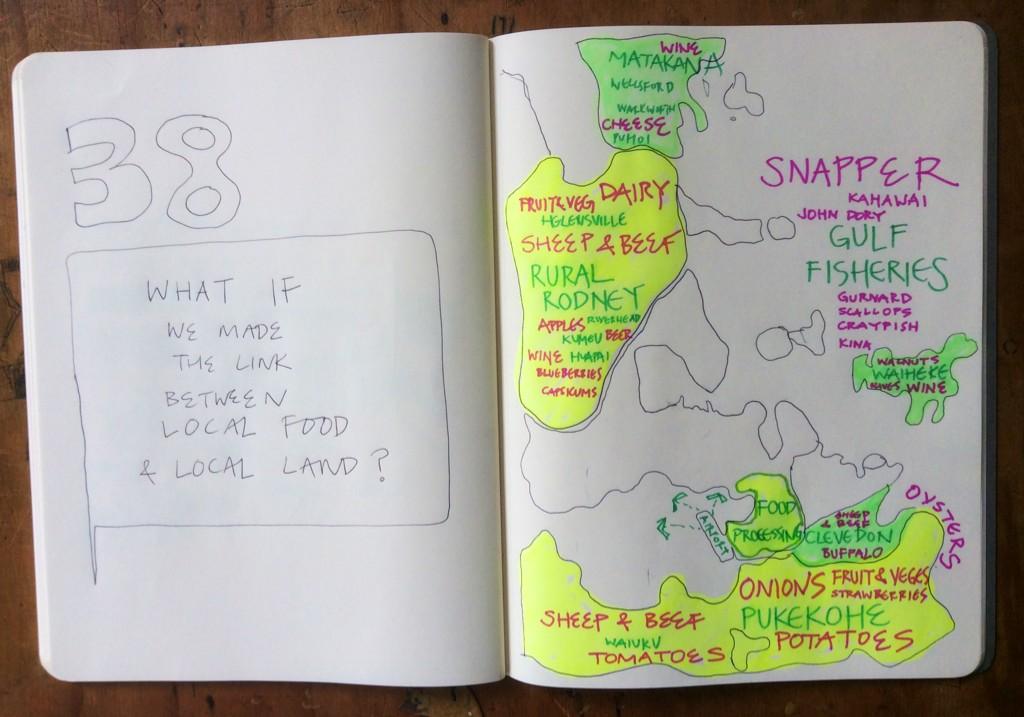 38
WHAT IF
WE MADE
THE LINK
BETWEEN
LOCAL FOOD
& LOCAL LAND?
WINE
MATAKANA
WELLSFORD
WARKWORTH
CHEESE
PUHOI
FRUIT & VEG DAIRY
HELENSVILLE
SHEEP & BEEF
RURAL
RODNEY
APPLES RIVERHEAD
KUMEU BEER
WINE HUAPAI
BLUEBERRIES
CAPSICUMS
SNAPPER
KAHAWAI
JOHN DORY
GULF
FISHERIES
GURNARD
SCALLOPS
CRAYFISH
KINA
WALNUTS
WAIHEKE
WINE
AIRPORT
FOOD
PROCESSING
SHEEP
& BEEF
CLEVEDON
BUFFALO
OYSTERS
ONIONS FRUIT & VEGES
STRAWBERRIES
SHEEP & BEEF PUKEKOHE
WAIUKU POTATOES
TOMATOES